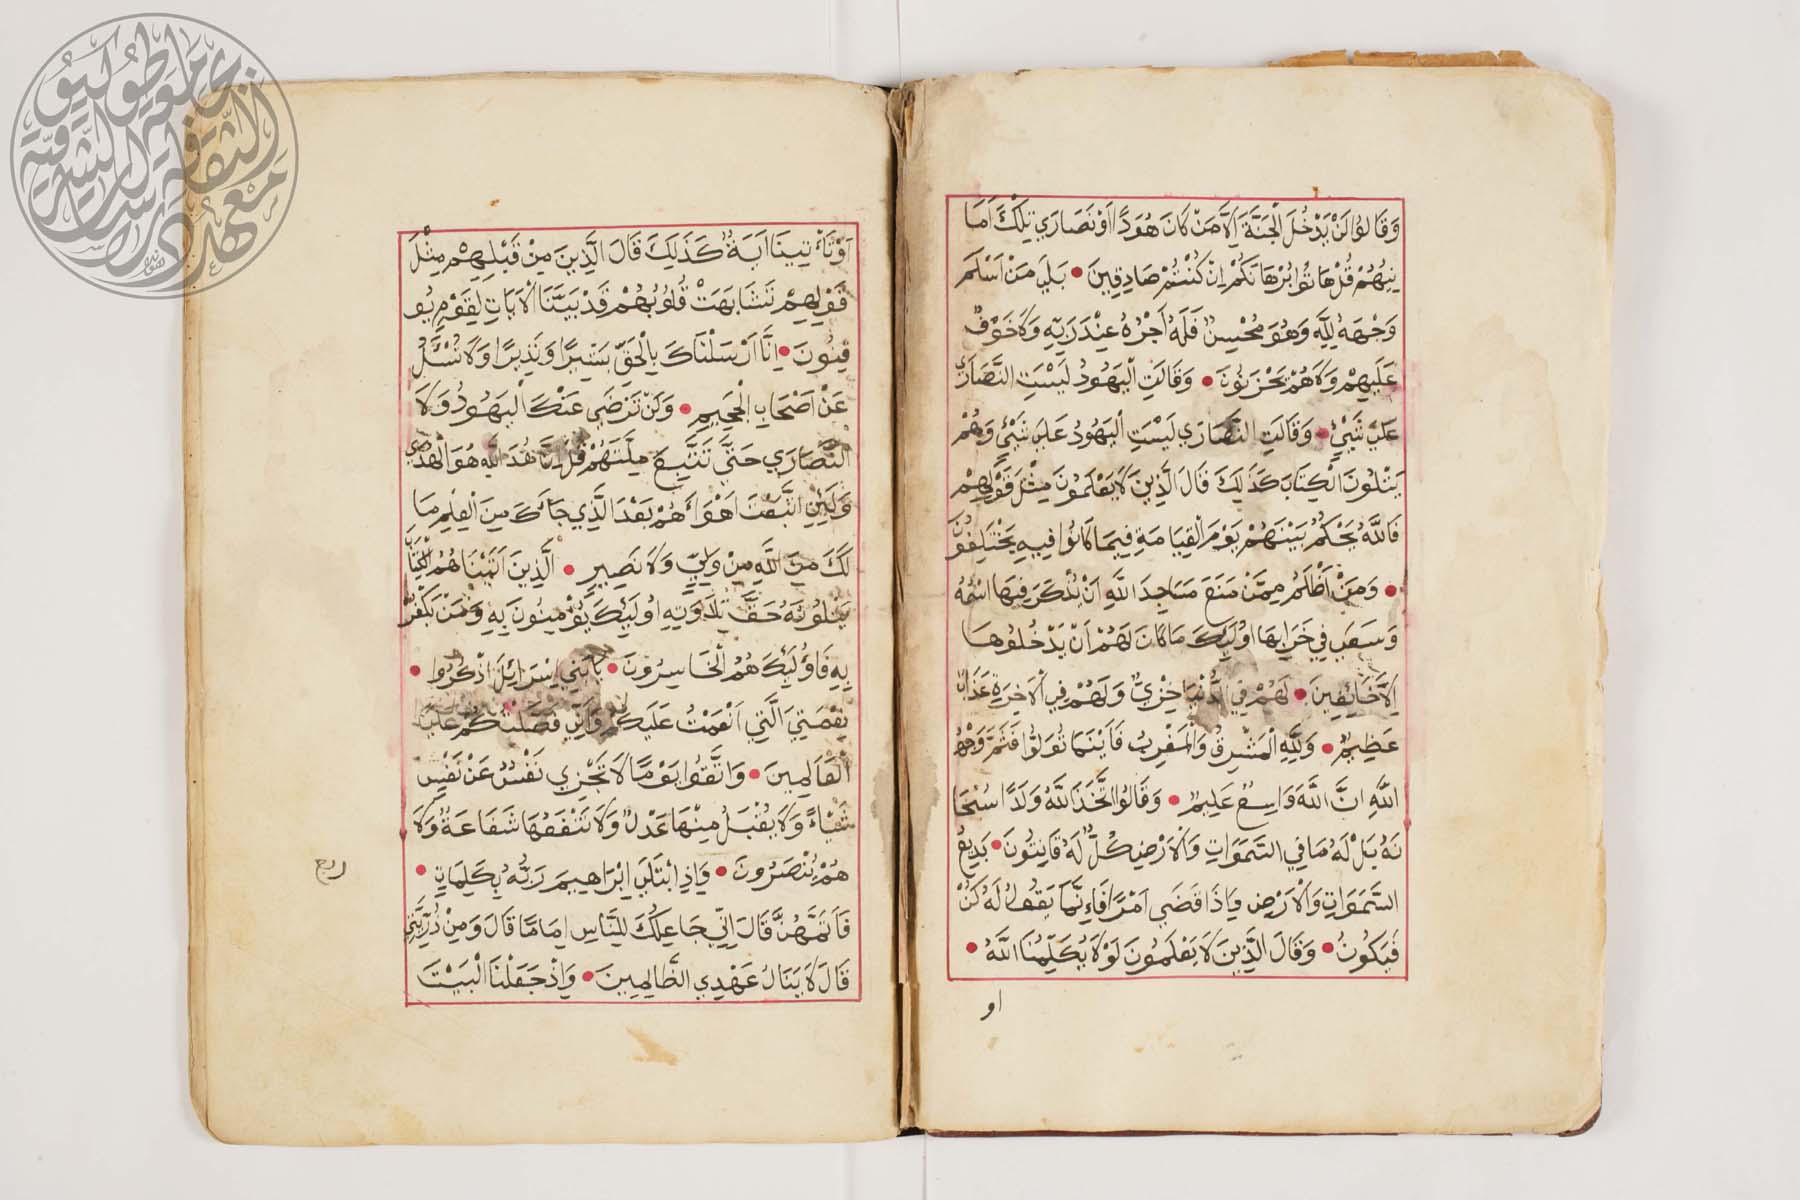 وَقَالُوا لَنْ يَدْخُلَ الْجَنَّةَ اِلَّا مَنْ كَانَ هُودًا اَوْ نَصَارَي تِلْكَ اَمَا
نِيُّهُمْ قُلْ هَاتُوا بُرْهَانَكُمْ اِنْ كُنْتُمْ صَادِقِينَ • بَلَي مَنْ اَسْلَمَ
وَجْهَهُ لِلّٰهِ وَهُوَ مُحْسِنٌ فَلَهُ اَجْرُهُ عِنْدَ رَبِّهِ وَلَا خَوْفٌ
عَلَيْهِمْ وَلَا هُمْ يَحْزَنُونَ • وَقَالَتِ الْيَهُودُ لَيْسَتِ النَّصَارَي
عَلَي شَيْئٍ • وَقَالَتِ النَّصَارَي لَيْسَتِ الْيَهُودُ عَلَي شَيْئٍ وَهُمْ
يَتْلُونَ الْكِتَابَ كَذَلِكَ قَالَ الَّذِينَ لَا يَعْلَمُونَ مِثْلَ قَوْلِهِمْ
فَاللّٰهُ يَحْكُمُ بَيْنَهُمْ يَوْمَ الْقِيَامَةِ فِيمَا كَانُوا فِيهِ يَخْتَلِفُونَ
• وَمَنْ اَظْلَمُ مِمَّنْ مَنَعَ مَسَاجِدَ اللّٰهِ اَنْ يُذْكَرَ فِيهَا اسْمُهُ
وَسَعَي فِي خَرَابِهَا اُولَئِكَ مَا كَانَ لَهُمْ اَنْ يَدْخُلُوهَا
اِلَّا خَائِفِينَ • لَهُمْ فِي الدُّنْيَا خِزْيٌ وَلَهُمْ فِي الْاَخِرَةِ عَذَابٌ
عَظِيمٌ • وَلِلّٰهِ الْمَشْرِقُ وَالْمَغْرِبُ فَاَيْنَمَا تُوَلُّوا فَثَمَّ وَجْهُ
اللّٰهِ اِنَّ اللّٰهَ وَاسِعٌ عَلِيمٌ • وَقَالُوا اتَّخَذَ اللّٰهُ وَلَدًا سُبْحَا
نَهُ بَلْ لَهُ مَا فِي السَّمَوَاتِ وَالْاَرْضِ كُلٌّ لَهُ قَانِتُونَ • بَدِيعُ
السَّمَوَاتِ وَالْاَرْضِ وَاِذَا قَضَي اَمْرًا فَاِنَّمَا يَقُولُ لَهُ كُنْ
فَيَكُونُ • وَقَالَ الَّذِينَ لَا يَعْلَمُونَ لَوْلَا يُكَلِّمُنَا اللّٰهُ •
او
اَوْ تَاْتِينَا اَيَةٌ كَذَلِكَ قَالَ الَّذِينَ مِنْ قَبْلِهِمْ مِثْلَ
قَوْلِهِمْ تَشَابَهَتْ قُلُوبُهُمْ قَدْ بَيَّنَّا الْاَيَاتِ لِقَوْمٍ يُو
قِنُونَ • اِنَّا اَرْسَلْنَاكَ بِالْحَقِّ بَشِيرًا وَنَذِيرًا وَلَا تُسْئَلُ
عَنْ اَصْحَابِ الْجَحِيمِ • وَلَنْ تَرْضَي عَنْكَ الْيَهُودُ وَلَا
النَّصَارَي حَتَّي تَتَّبِعَ مِلَّتَهُمْ قُلْ اِنَّ هُدَي اللّٰهِ هُوَ الْهُدَي
وَلَئِنِ اتَّبَعْتَ اَهْوَاءَهُمْ بَعْدَ الَّذِي جَاءَكَ مِنَ الْعِلْمِ مَا
لَكَ مِنَ اللّٰهِ مِنْ وَلِيٍّ وَلَا نَصِيرٍ • الَّذِينَ اَتَيْنَاهُمُ الْكِتَابَ
يَتْلُونَهُ حَقَّ تِلَاوَتِهِ اُولَئِكَ يُؤْمِنُونَ بِهِ وَمَنْ يَكْفُرْ
بِهِ فَاُولَئِكَ هُمُ الْخَاسِرُونَ • يَابَنِي اِسْرَائِلَ اذْكُرُوا •
نِعْمَتِيَ الَّتِي اَنْعَمْتُ عَلَيْكُمْ وَاَنِّي فَضَّلْتُكُمْ عَلَي
الْعَالَمِينَ • وَاتَّقُوا يَوْمًا لَا تَجْزِي نَفْسٌ عَنْ نَفْسٍ
شَيْاءً وَلَا يُقْبَلُ مِنْهَا عَدْلٌ وَلَا تَنْفَعُهَا شَفَاعَةٌ وَلَا
هُمْ يُنْصَرُونَ • وَاِذِ ابْتَلَي اِبْرَاهِيمَ رَبُّهُ بِكَلِمَاتٍ •
فَاَتَمَّهُنَّ قَالَ اِنِّي جَاعِلُكَ لِلنَّاسِ اِمَامًا قَالَ وَمِنْ ذُرِّيَّتِي
قَالَ لَا يَنَالُ عَهْدِي الظَّالِمِينَ • وَاِذْ جَعَلْنَا الْبَيْتَ